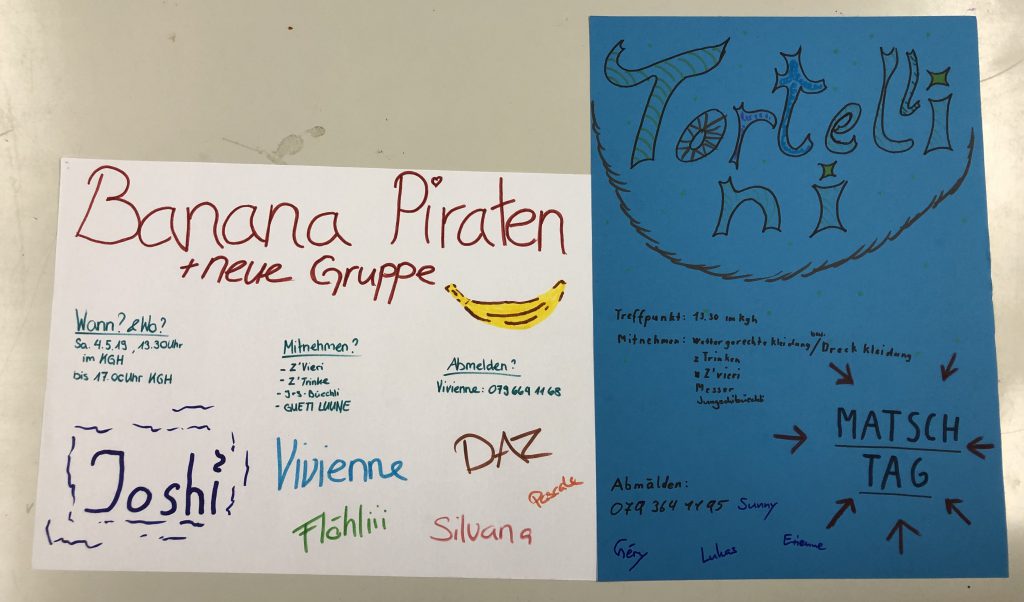 Banana Piraten
+ neue Gruppe
Wann? & Wo?
Sa. 4.5.19, 13.30 Uhr
im KGH
bis 17.00 Uhr KGH
Mitnehmen?
- Z'Vieri
- Z'Trinke
- J+S-Büechli
- GUETI LUUNE
Abmelden?
Vivienne: 079 664 11 68
Joshi
Vivienne
DAZ
Pascale
Flöhliii
Silvana
Tortelli
ni
Treffpunkt: 13.30 im Kgh
Mitnehmen: Wettergerechte kleidung/bzw. Dreck kleidung
z Trinken
Z'vieri
Messer
Jungschibüechli
MATSCH
TAG
Abmälden:
079 364 11 95 Sunny
Géry
Lukas
Etienne